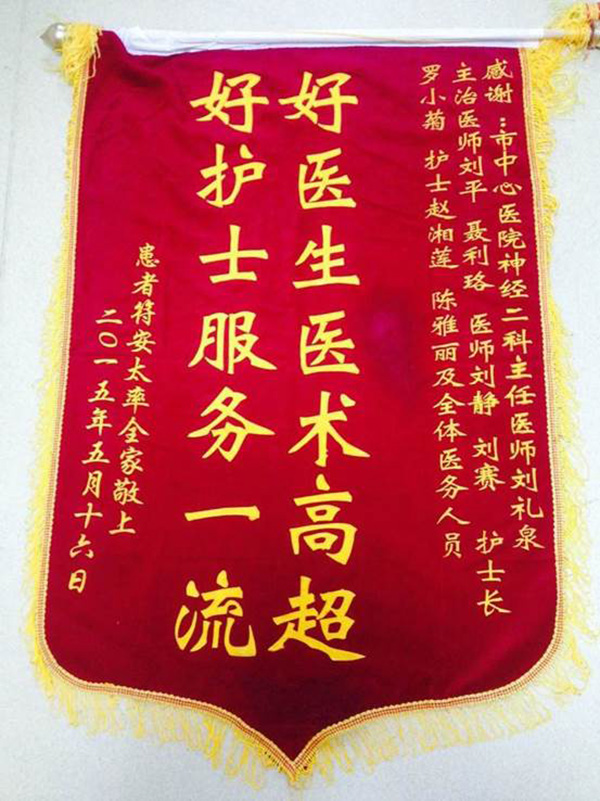 感谢:市中心医院神经二科主任医师刘礼泉
主治医师刘平 聂利珞 医师刘静 刘赛 护士长
罗小菊 护士赵湘莲 陈雅丽及全体医务人员
好医生医术高超
好护士服务一流
患者符安太率全家敬上
二〇一五年五月十六日